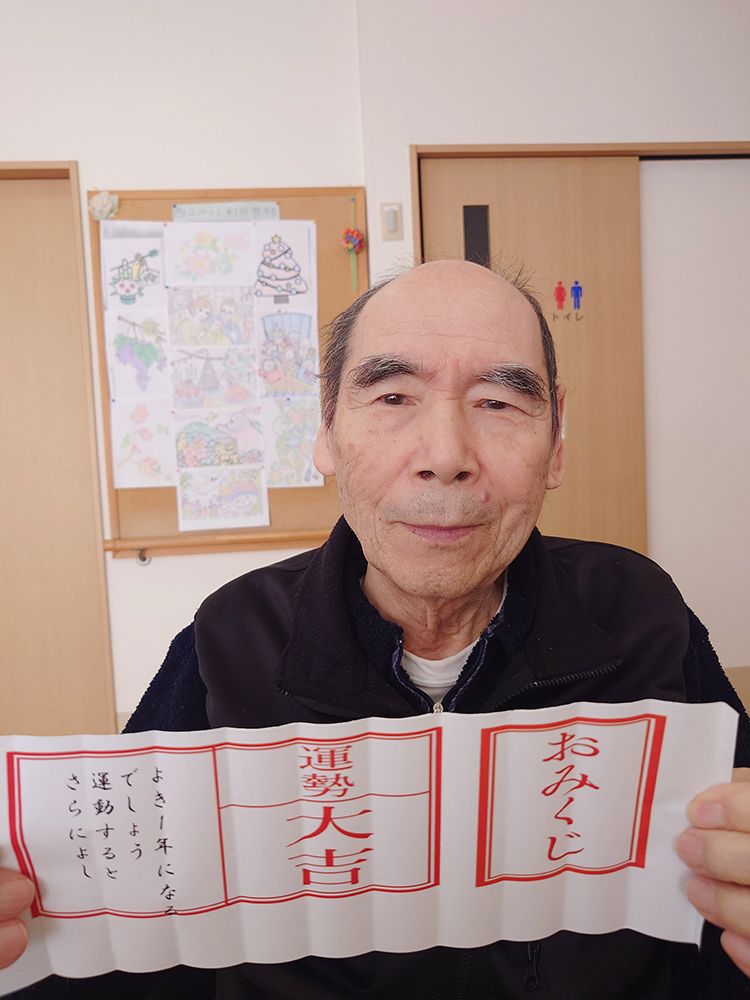 おみくじ
運勢
大吉
よき1年になる
でしょう
運動すると
さらによし
トイレ